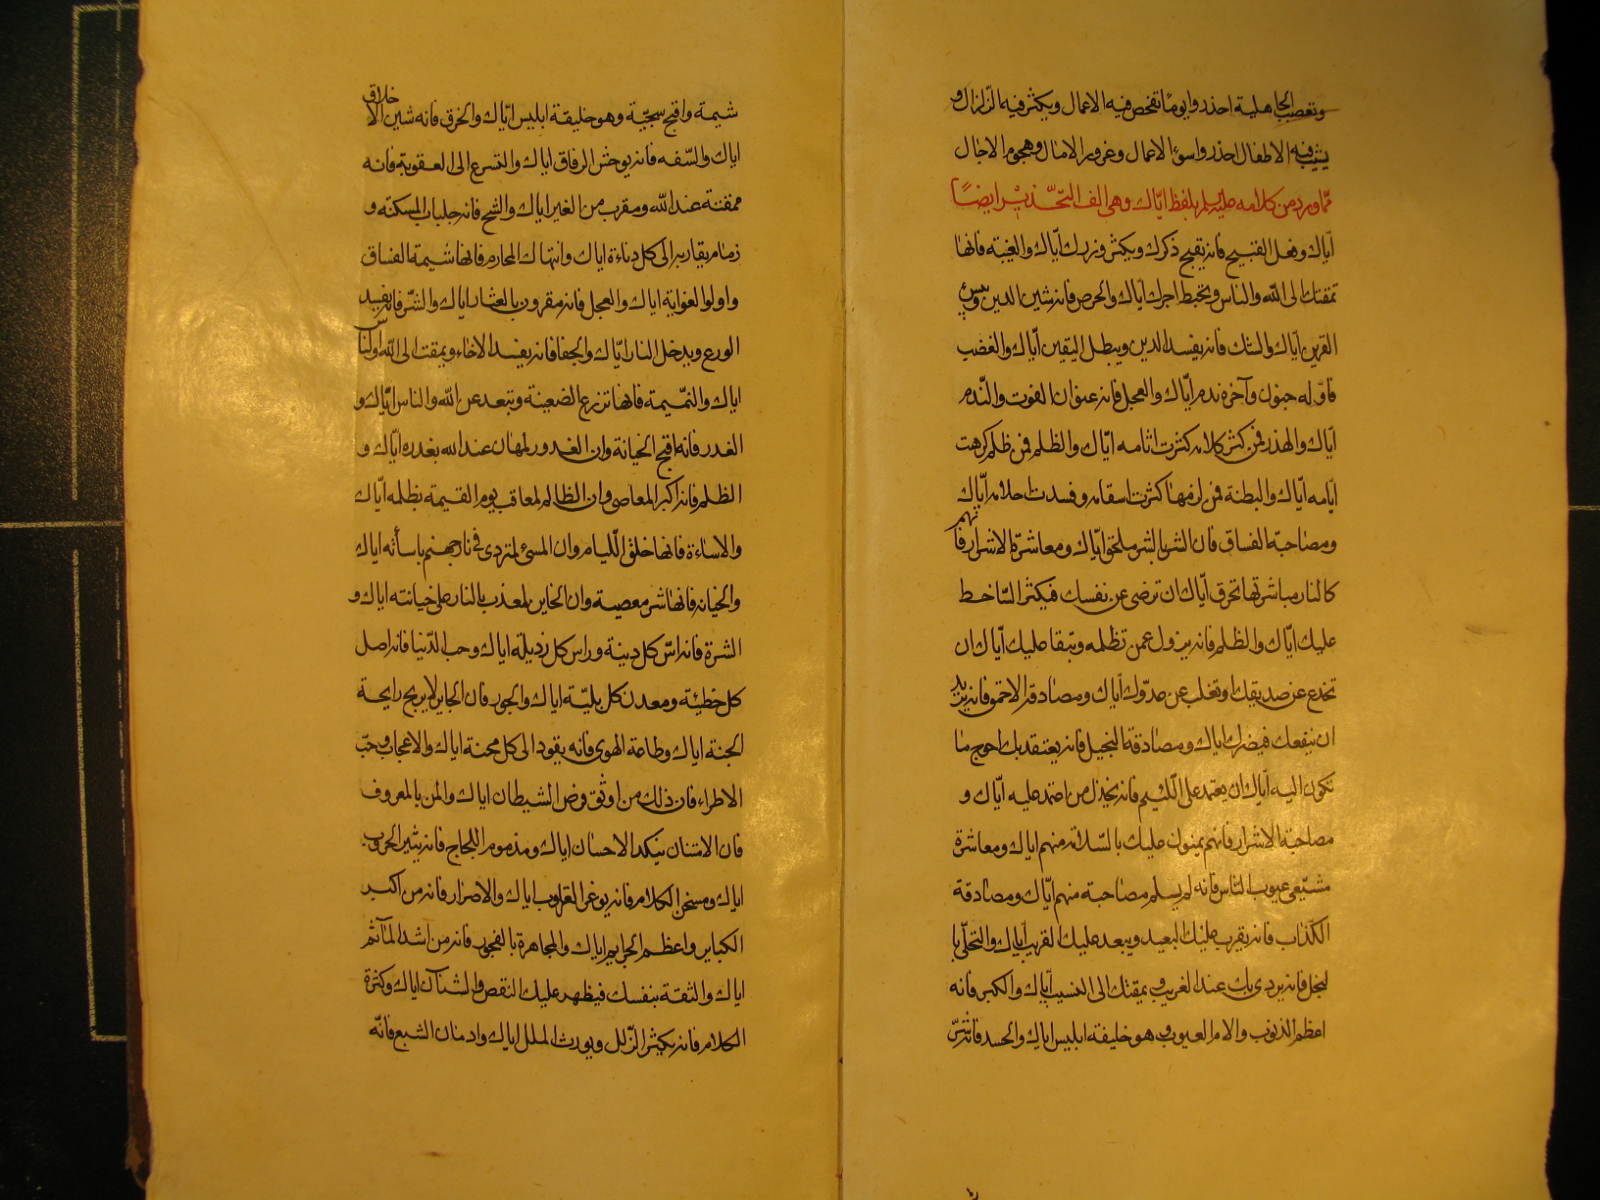 وتعصب الجاهلية احذروا يوما تفحص فيه الاعمال ويكثر فيه الزلزال و
يشيب فيه الاطفال احذروا سوء الاعمال وغرور الامال وهجوم الاجال
مما ورد من كلامه عليه السلم بلفظ اياك وهي الف التحذير ايضاً
اياك وفعل القبيح فانه يقبح ذكرك ويكثر وزرك اياك والغيبة فانها
تمقتك الى الله والناس ويحبط اجرك اياك والحرص فانه شين الدين وبئس
القرين اياك والشك فانه يفسد الدين ويبطل اليقين اياك والغضب
فاوله جنون وآخره ندم اياك والعجل فانه عنوان الفوت والندم
اياك والهذر فمن كثر كلامه كثرت اثامه اياك والظلم فمن ظلم كرهت
ايامه اياك والبطنة فمن لزمها كثرت اسقامه وفسدت احلامه اياك
ومصاحبة الفساق فان الشر بالشر ملحق اياك ومعاشرة الاشرار فانهم
كالنار مباشرتها تحرق اياك ان ترضى عن نفسك فيكثر الساخط
عليك اياك والظلم فانه يزول عمن تظلمه ويبقا عليك اياك ان
تخدع عن صديقك او تغلب عن عدوك اياك ومصادقة الاحمق فانه يريد
ان ينفعك فيضرك اياك ومصادقة البخيل فانه يقعد بك احوج ما
تكون اليه اياك ان يعتمد على اللئيم فانه يخذل من اعتمد عليه اياك و
مصاحبة الاشرار فانهم يمنون عليك بالسلامة منهم اياك ومعاشرة
متتبعي عيوب الناس فانه لم يسلم مصاحبة منهم اياك ومصادقة
الكذاب فانه يقرب عليك البعيد ويبعد عليك القريب اياك والتحلي با
لبخل فانه يزدي بك عند الغريب ويمقتك الى النسيب اياك والكبر فانه
اعظم الذنوب والام العيوب وهو خليفة ابليس اياك والحسد فانه شر
شيمة واقبح سجية وهو خليقة ابليس اياك والخرق فانه شين الاخلاق
اياك والسفه فانه يوحش الرفاق اياك والتسرع الى العقوبة فانه
ممقتة عند الله ومقرب من الغير اياك والشح فانه جلباب المسكنه و
زمام يقاد به الى كل دناءة اياك وانتهاك المحارم فانها شيمة الفساق
واولوا الغواية اياك والعجل فانه مقرون بالعثار اياك والشر فانه يفسد
الورع ويدخل النار اياك والجفا فانه يفسد الاخاء ويمقت الى الله والناس
اياك والنميمة فانها تزرع الضغينة وتبعد عن الله والناس اياك و
الغدر فانه اقبح الخيانة وان الغدور لمهان عند الله بغدره اياك و
الظلم فانه اكبر المعاصي وان الظالم لمعاقب يوم القيمة بظلمه اياك
والاساءة فانها خلق اللئام وان المسئ لمتردي في نار جهنم باسائته اياك
والخيانه فانها شر معصية وان الخاين لمعذب بالنار على خيانته اياك و
الشرة فانه اس كل دنية وراس كل رذيلة اياك وحب الدنيا فانه اصل
كل خطيئة ومعدن كل بلية اياك والجور فان الجاير لا يريح رايحة
الجنة اياك وطاعة الهوى فانه يقود الى كل محنة اياك والاعجاب وحب
الاطراء فان ذلك من اوثق فرص الشيطان اياك والمن بالمعروف
فان الامتنان ينكد الاحسان اياك ومذموم اللجاج فانه يثير الحرب
اياك ومستهجن الكلام فانه يوغر القلوب اياك والاصرار فانه من اكبر
الكباير واعظم الجرايم اياك والمجاهرة بالفجور فانه من اشد المآثم
اياك والثقة بنفسك فيظهر عليك النقص والشنآن اياك وكثرة
الكلام فانه يكثر الزلل ويورث الملل اياك وادمان الشبع فانه